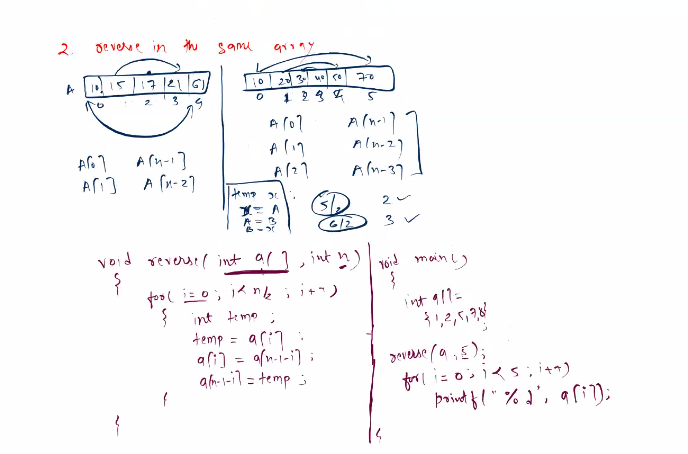 2. reverse in the same array
A 10 15 17 21 61
0 2 3 4
10 20 30 40 50 70
0 1 2 3 4 5
A[0] A[n-1]
A[1] A[n-2]
A[0] A[n-1]
A[1] A[n-2]
A[2] A[n-3]
temp x
x = A
A = B
B = x
5/2 2 ✓
6/2 3 ✓
void reverse( int a[ ] , int n )
{
for( i=0 ; i< n/2 ; i++ )
{ int temp ;
temp = a[i] ;
a[i] = a[n-1-i] ;
a[n-1-i] = temp ;
}
}
void main()
{
int a[]=
{1,2,5,7,8}
;
reverse(a,5);
for( i=0; i<5; i++)
printf("%d", a[i]);
}